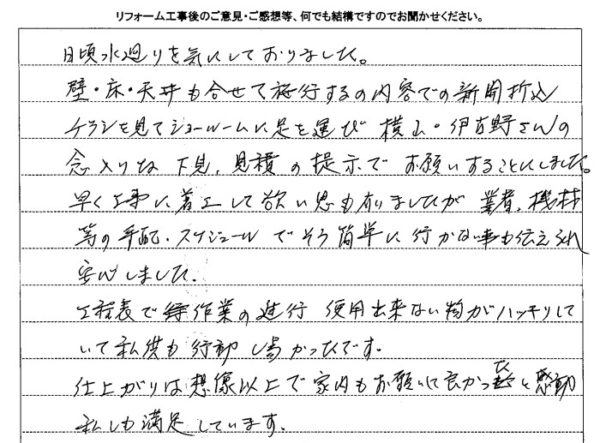 リフォーム工事後のご意見・ご感想等、何でも結構ですのでお聞かせください。
日頃水廻りを気にしておりました。
壁・床・天井も合せて施行するの内容での新聞折込
チラシを見てショールームに足を運び 横山・伊古野さんの
念入りな下見、見積の提示でお願いすることにしました。
早く工事に着工して欲しい思も有りましたが 業者、機材
等の手配、スケジュールでそう簡単に行かない事も伝えられ
安心しました。
工程表で 作業の進行 使用出来ない物がハッキリして
いて私供も行動し易かったです。
仕上がりは想像以上で家内もお願いして良かった と感動
私しも満足しています。